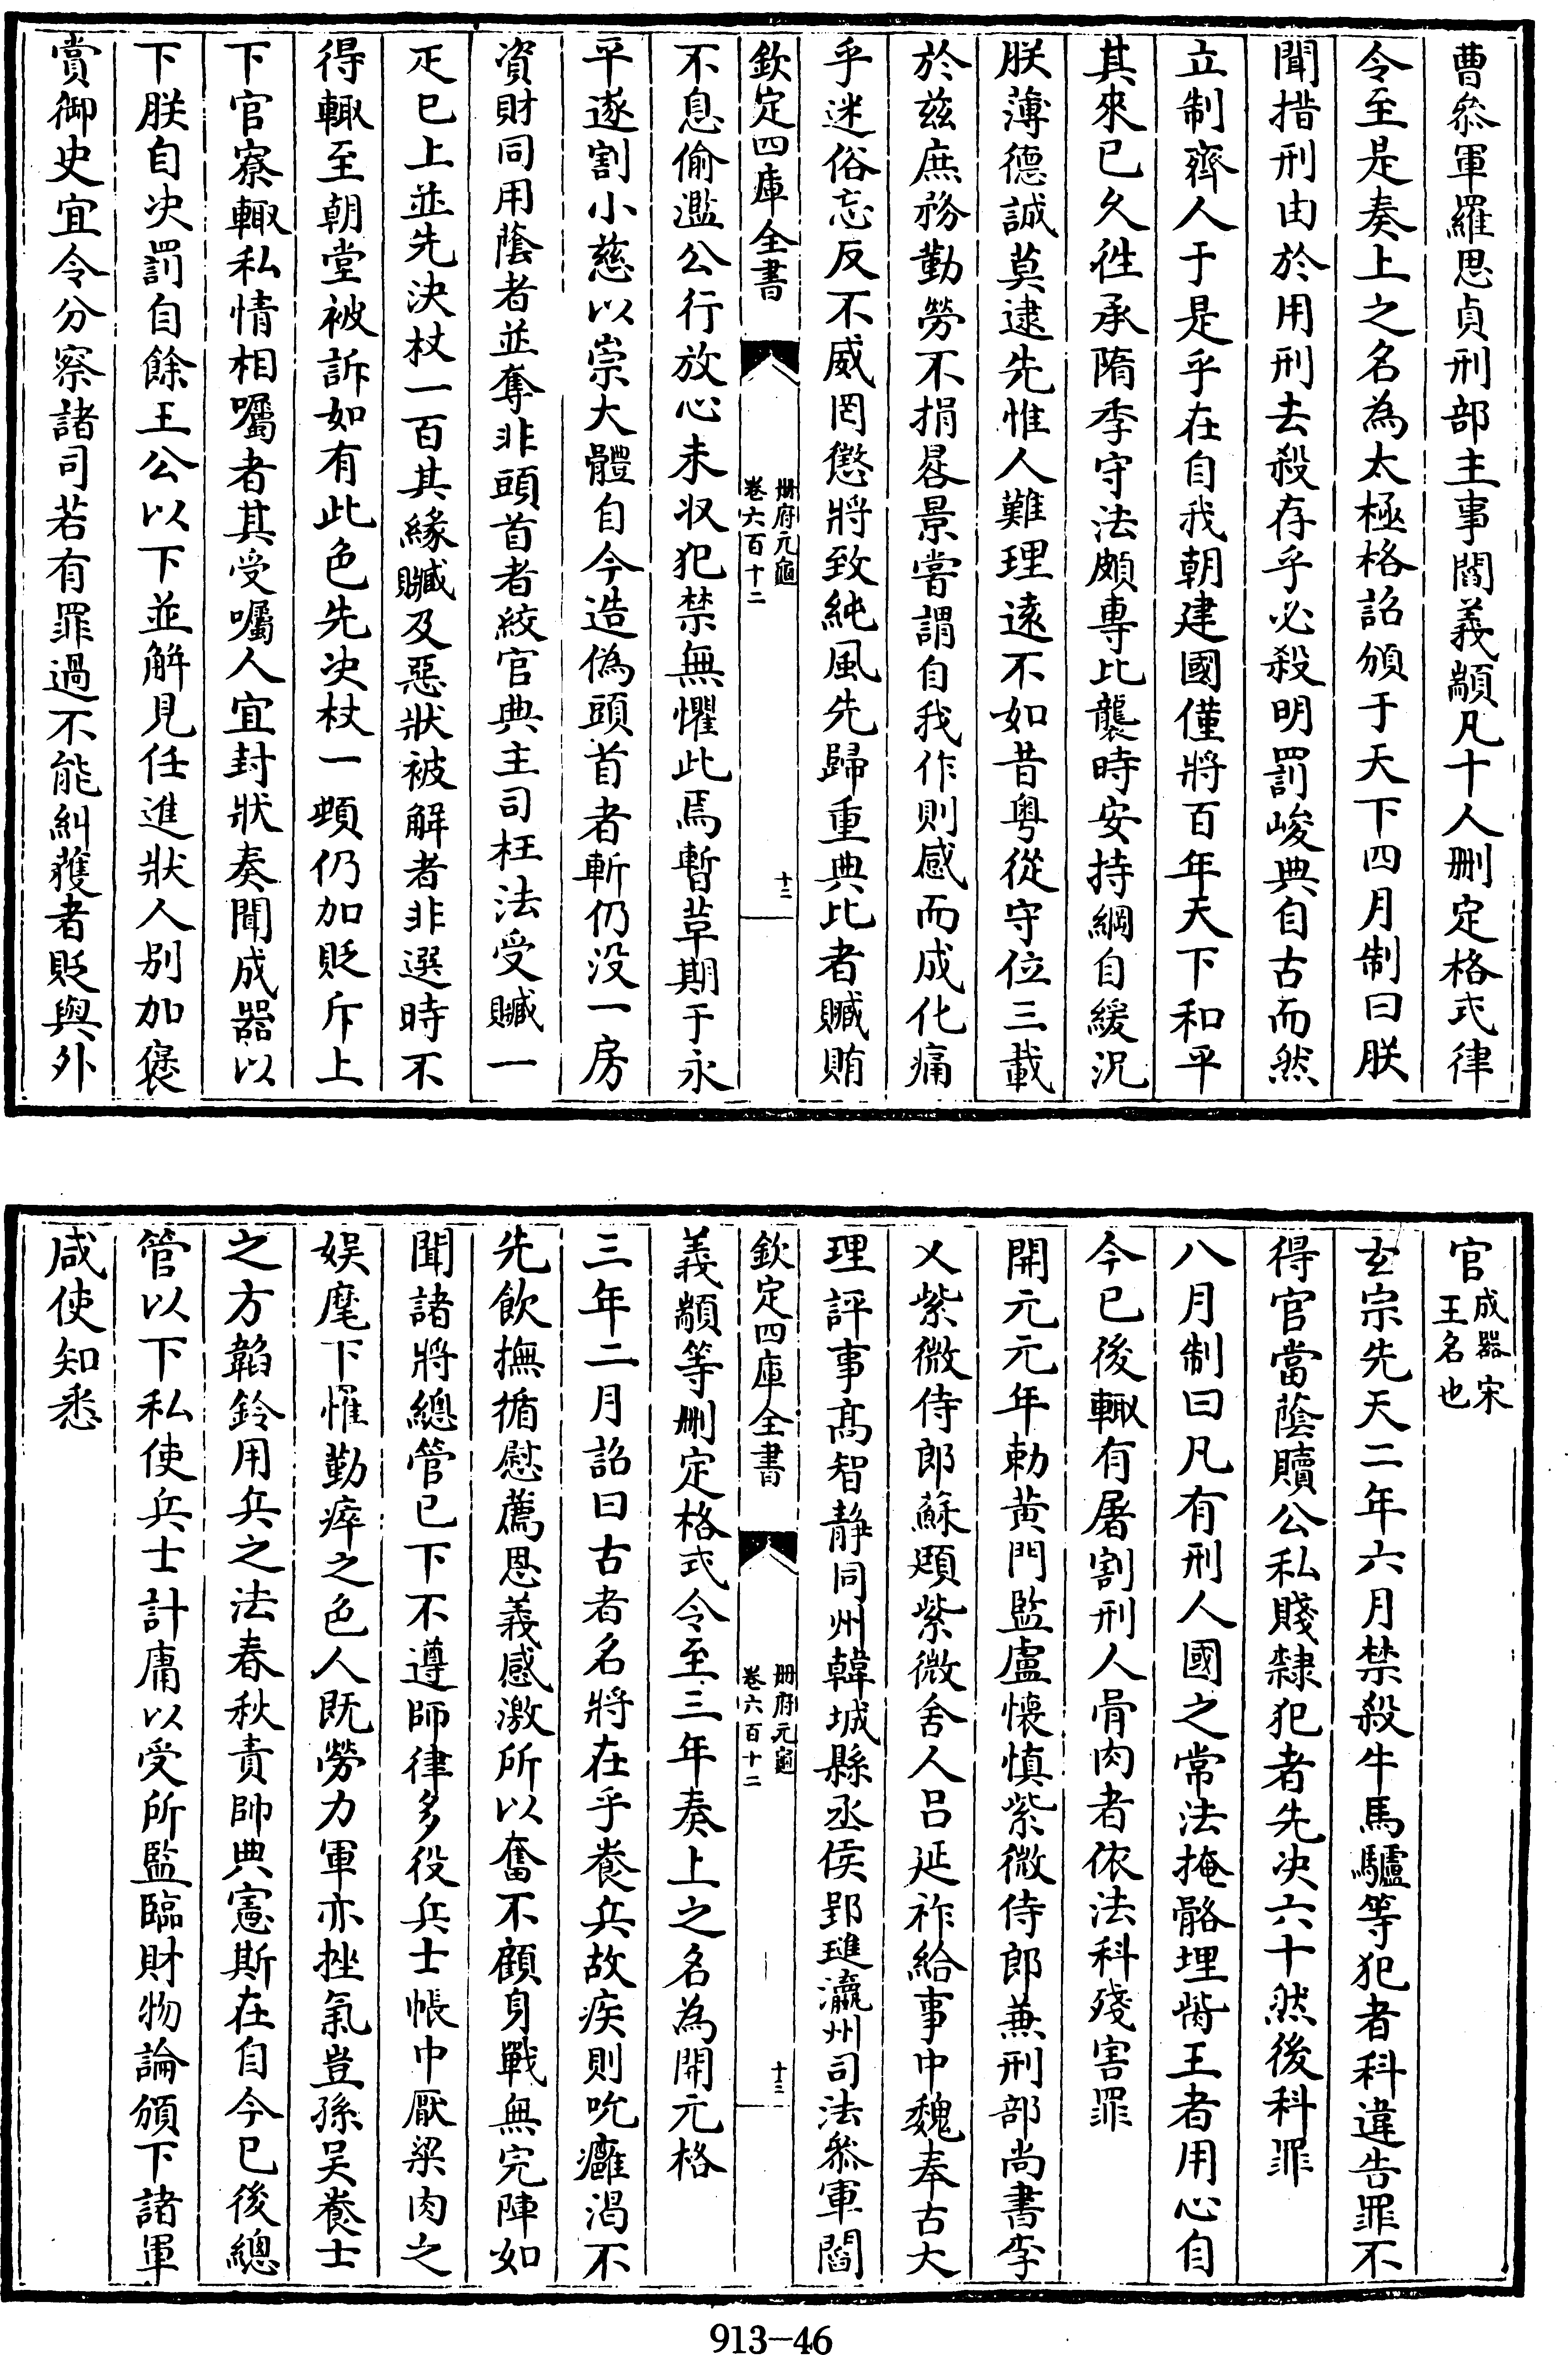 曹叅軍羅思貞刑部主事閻義顓凡十人刪定格式律
令至是奏上之名為太極格詔頒于天下四月制曰朕
聞措刑由於用刑去殺存乎必殺明罰峻典自古而然
立制齊人于是乎在自我朝建國僅將百年天下和平
其來已久徃承隋季守法頗專比襲時安持綱自緩況
朕薄德誠莫逮先惟人難理逺不如昔粤從守位三載
於兹庶務勤勞不捐晷景嘗謂自我作則感而成化痛
乎迷俗忘反不威罔懲將致純風先歸重典比者贓賄
欽定四庫全書
冊府元龜
卷六百十二
十二
不息偷濫公行放心未収犯禁無懼此焉暫草期于永
平遂割小慈以崇大體自今造偽頭首者斬仍没一房
資財同用蔭者並奪非頭首者絞官典主司枉法受贓一
疋已上並先決杖一百其緣贓及惡狀被解者非選時不
得輙至朝堂被訴如有此色先决杖一頓仍加貶斥上
下官寮輙私情相囑者其受囑人宜封狀奏聞成器以
下朕自决罰自餘王公以下並解見任進狀人别加褒
賞御史宜令分察諸司若有罪過不能糾䕶者貶與外
官成器宋
王名也
玄宗先天二年六月禁殺牛馬驢等犯者科違告罪不
得官當蔭贖公私賤隸犯者先决六十然後科罪
八月制曰凡有刑人國之常法掩骼埋胔王者用心自
今已後輙有屠割刑人骨肉者依法科殘害罪
開元元年勅黄門監盧懷慎紫微侍郎兼刑部尚書李
乂紫微侍郎蘇頲紫微舍人吕延祚給事中魏奉古大
理評事高智静同州韓城縣丞侯郢璡瀛州司法叅軍閻
欽定四庫全書
冊府元龜
卷六百十二
十三
義顓等刪定格式令至三年奏上之名為開元格
三年二月詔曰古者名將在乎養兵故疾則吮癰渴不
先飲撫循慰薦恩義感激所以奮不顧身戰無完陣如
聞諸將總管已下不遵師律多役兵士帳中厭粱肉之
娱麾下罹勤瘁之色人既勞力軍亦挫氣豈孫吴養士
之方韜鈐用兵之法春秋責帥典憲斯在自今已後總
管以下私使兵士計庸以受所監臨財物論頒下諸軍
咸使知悉
913-46